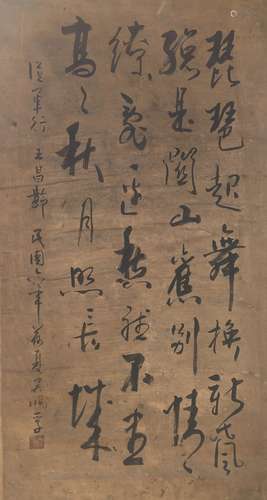 琵琶起舞換新聲
總是關山舊別情
繚亂邊愁聽不盡
高〻秋月照長城
從軍行 王昌齡 民國六年 夏 吳佩孚